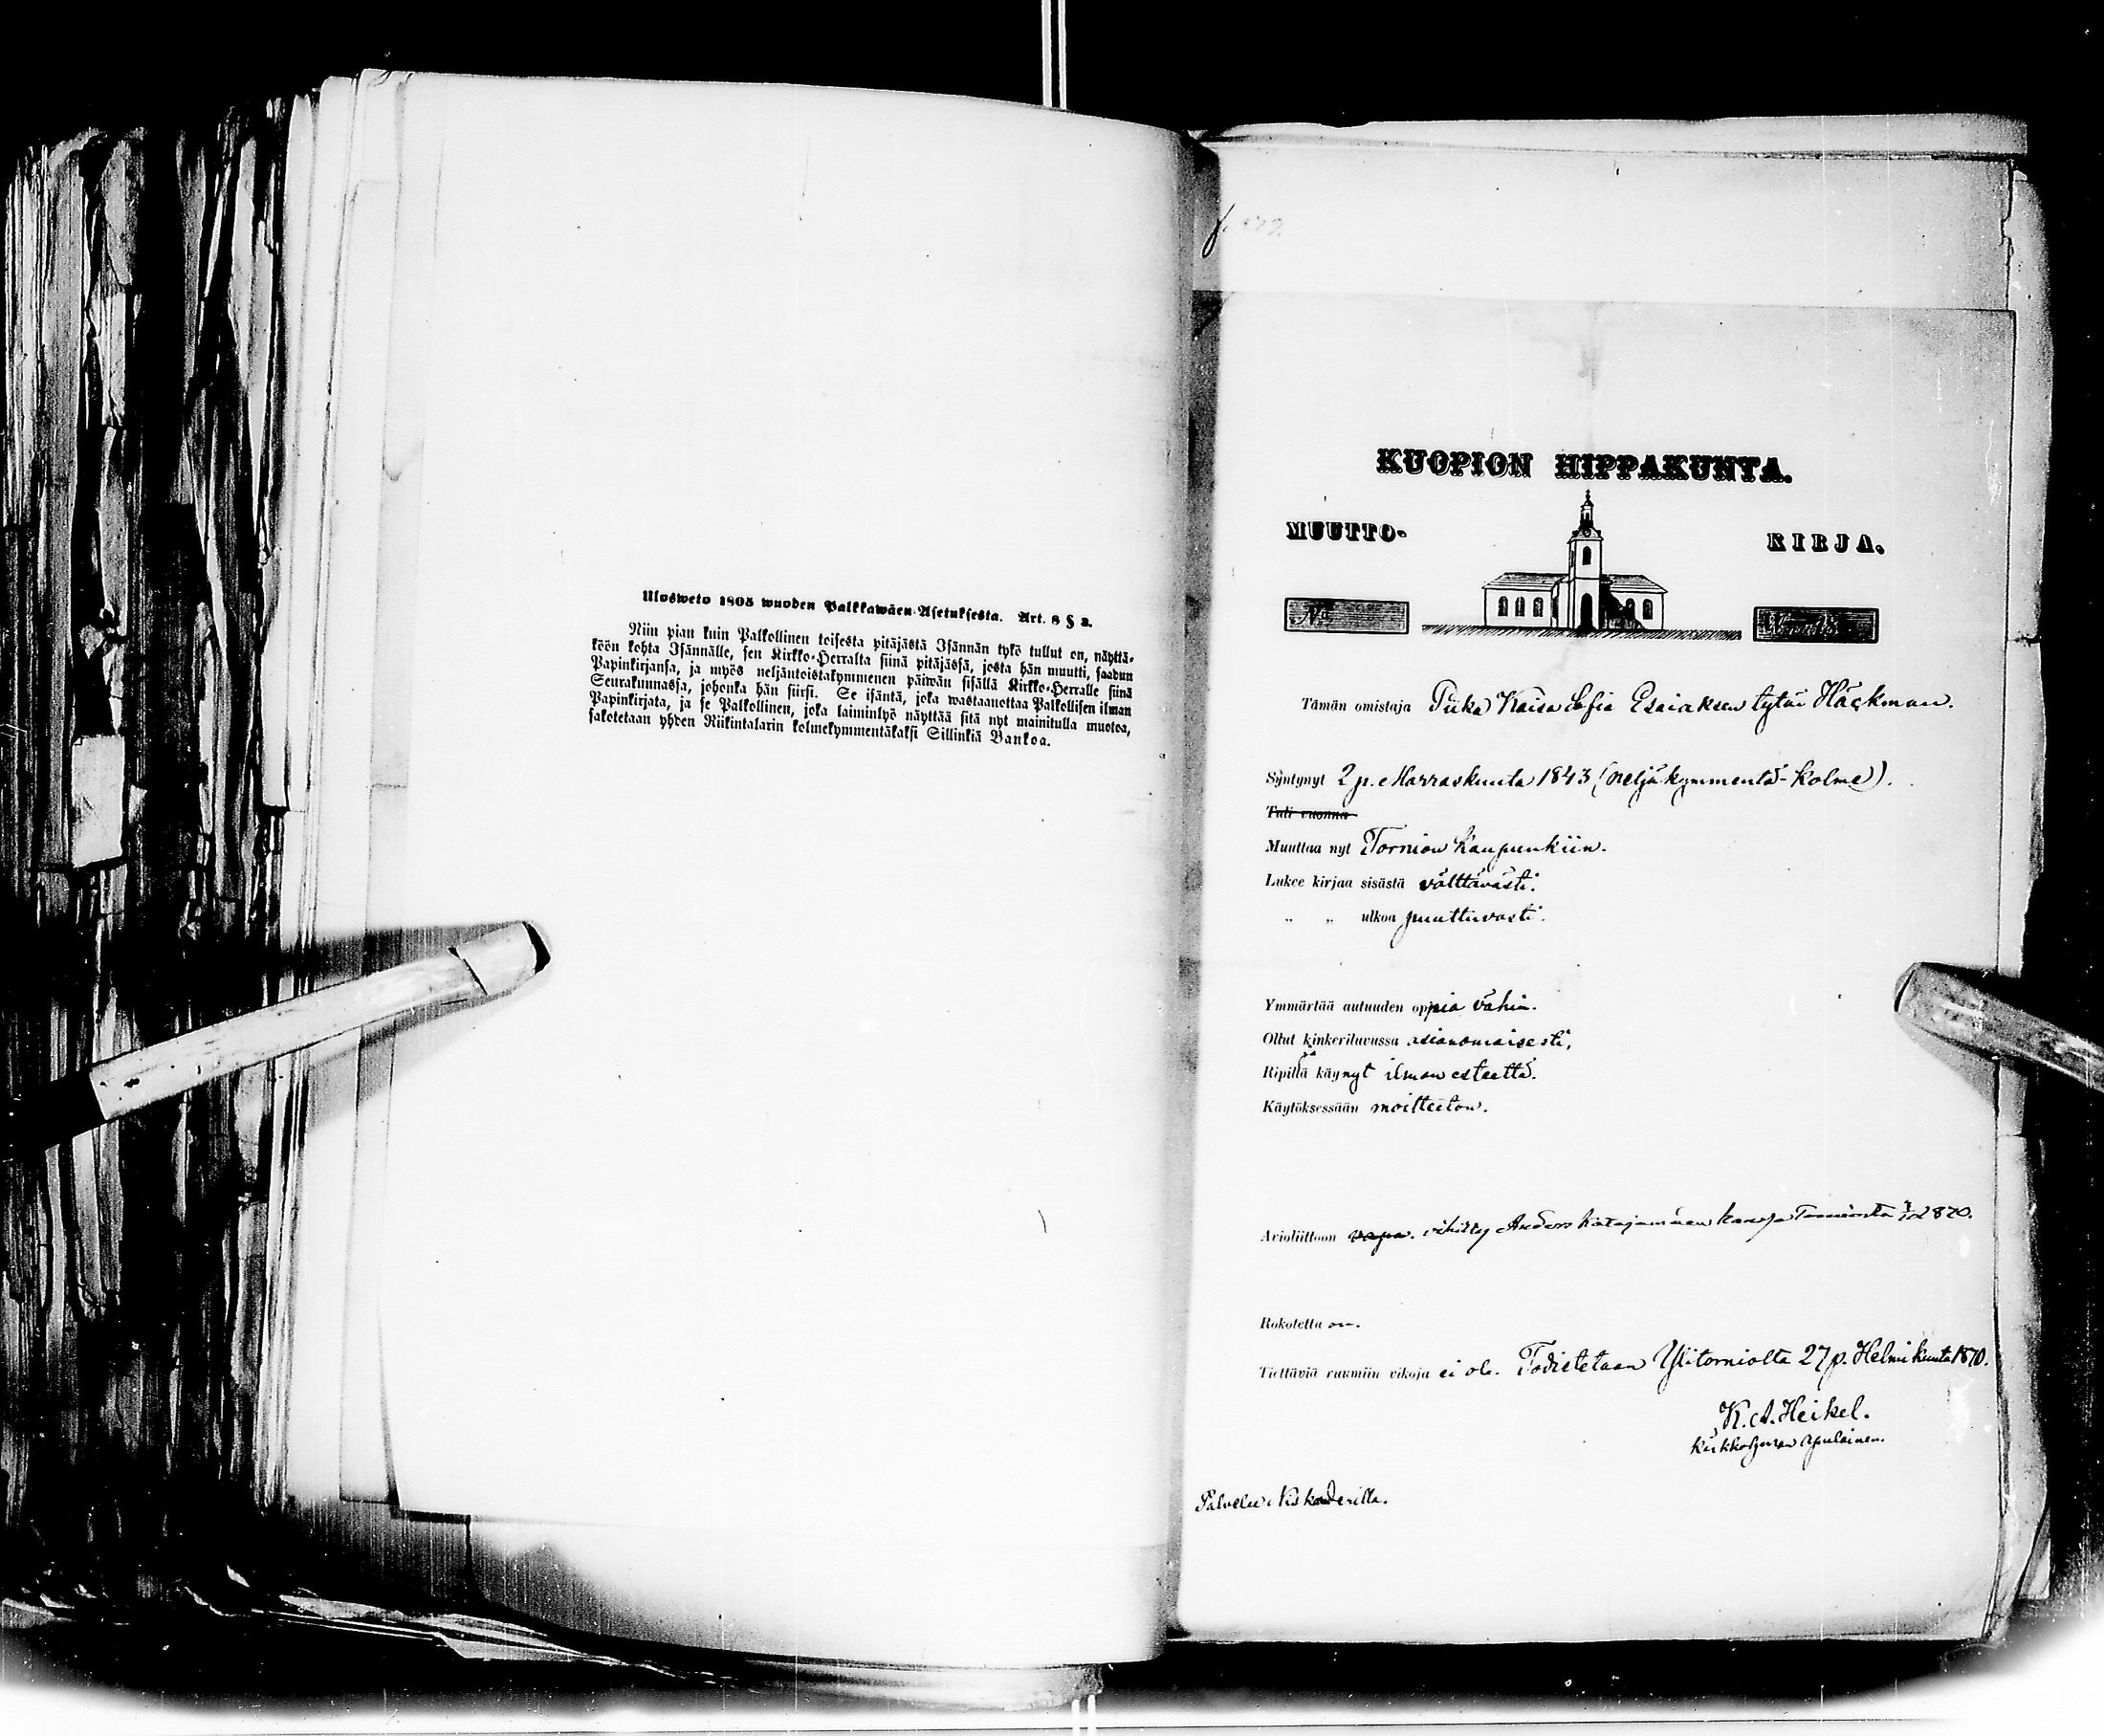 Ulosweto 1805 wuoden Palkkawäen Asetuksesta. Art. 8 § 2.
Niin pian kuin Palkollinen toisesta pitäjästä Isännän tykö tullut on, näyttä-
köön kohta Isännälle, sen Kirkko-Herralta siinä pitäjässä, josta hän muutti, saadun
Papinkirjansa, ja myös neljäntoistakymmenen päiwän sisällä Kirkko-Herralle siinä
Seurakunnassa, johonka hän siirsi. Se isäntä, joka wastaanottaa Palkollisen ilman
Papinkirjata, ja se Palkollinen, joka laiminlyö näyttää sitä nyt mainitulla muotoa,
sakotetaan yhden Riikintalarin kolmekymmentäkaksi Sillinkiä Bankoa.
KUOPION HIPPAKUNTA.
MUUTTO- KIRJA.
No
Tämän omistaja Piika Kaisa Sofia Esaiaksen tytär Häckman.
Syntynyt 2 p. Marraskuuta 1843 (neljäkymmentä-kolme).
Tuli vuonna
Muuttaa nyt Tornion Kaupunkiin.
Lukee kirjaa sisästä välttävästi.
" " ulkoa puuttuvasti.
Ymmärtää autuuden oppia vähin.
Ollut kinkeriluvussa asianomaisesti,
Ripillä käynyt ilman esteettä.
Käytöksessään moitteeton.
Avioliittoon vapa. vihitty Anders kanssa 1870.
Rokotettu on.
Tiettäviä ruumiin vikoja ei ole. Todistetaan Ylitorniolta 27 p. Helmikuuta 1870.
K. A. Heikel.
Kirkkoherran apulainen.
Palvelee